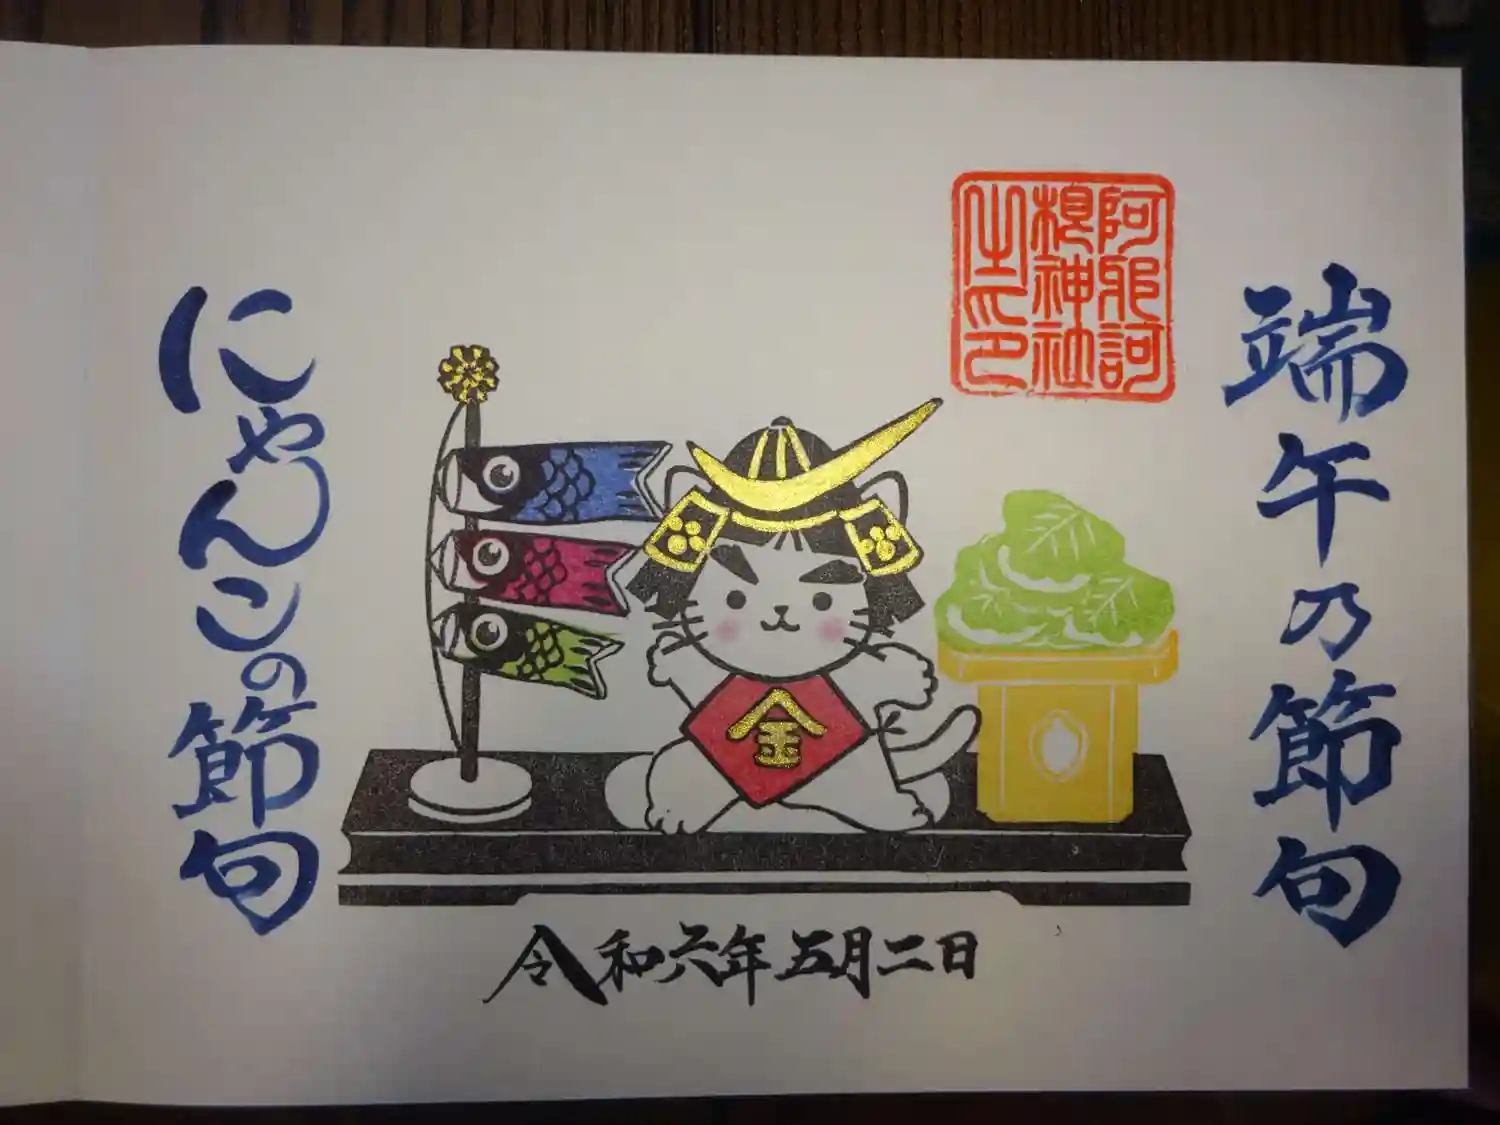 端午の節句
阿邪訶
根神社
之印
金
にゃんこの節句
令和六年五月二日